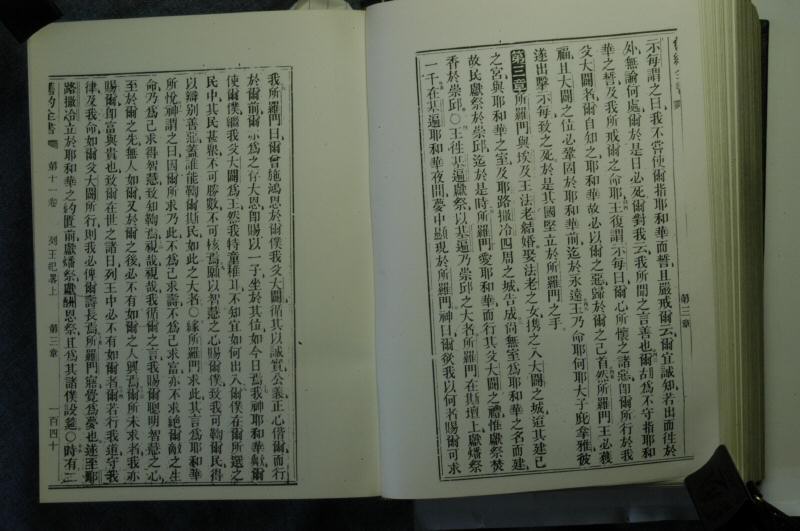 示每謂之曰我不嘗使爾指耶和華而誓且嚴戒爾云爾宜誠知若出而往於
外無論何處爾於是日必死爾對我云我所聞之言善也爾胡爲不守指耶和
華之誓及我所戒爾之命耶王復謂示每曰爾心所懷之諸惡即爾所行於我
父大闢者爾自知之耶和華故必以爾之惡歸於爾之己首然所羅門王必獲
福且大闢之位必鞏固於耶和華前迄於永遠王乃命耶何耶大子庇拿雅彼
遂出擊示每致之死於是其國堅立於所羅門之手
第三章所羅門與埃及王法老結婚娶法老之女攜之入大闢之城迨其建己
之宮與耶和華之室及耶路撒冷四周之城告成尚無室爲耶和華之名而建
故民獻祭於崇邱迄於是時所羅門愛耶和華而行其父大闢之禮惟獻祭焚
香於崇邱〇王往基遍獻祭以基遍乃崇邱之大者所羅門在斯壇上獻燔祭
一千在基遍耶和華夜間夢中顯現於所羅門神曰爾欲我以何者賜爾可求
第三章
我所羅門曰爾曾施鴻恩於爾僕我父大闢循其以誠實公義正心偕爾而行
於爾前爾亦爲之存大恩即賜以一子坐於其位如今日焉我神耶和華歟爾
使爾僕繼我父大闢爲王然我特童稚耳不知宜如何出入爾僕在爾所選之
民中其民甚衆不可勝數不可核焉願以智慧之心賜爾僕致我可鞫爾民得
以辯别善惡蓋誰能鞫斯民如此之大者〇緣所羅門求此其言爲耶和華
所悅神謂之曰因爾所求乃此不爲己求壽不爲己求富亦不求絶爾敵之生
命乃爲己求得智慧致知鞫焉視哉視哉我循爾之言我賜爾聰明智慧之心
至於爾之先無人如爾又於爾之後必不有如爾之人興焉爾所未求者我亦
賜爾即富與貴也致爾在世之諸日列王中必不有如爾者爾若行我道守我
律及我命如爾父大闢所行則我必俾爾壽長焉所羅門寤覺爲夢也遂至耶
路撒冷立於耶和華之約置前獻燔祭獻酬恩祭且爲其諸僕設筵〇時有二
舊約全書 第十一卷 列王紀畧上 第三章 一百四十